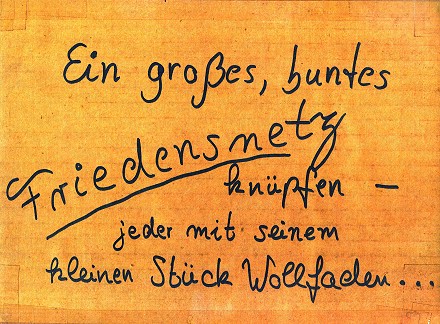 Ein großes, buntes
Friedensnetz
knüpfen –
jeder mit seinem
kleinen Stück Wollfaden...